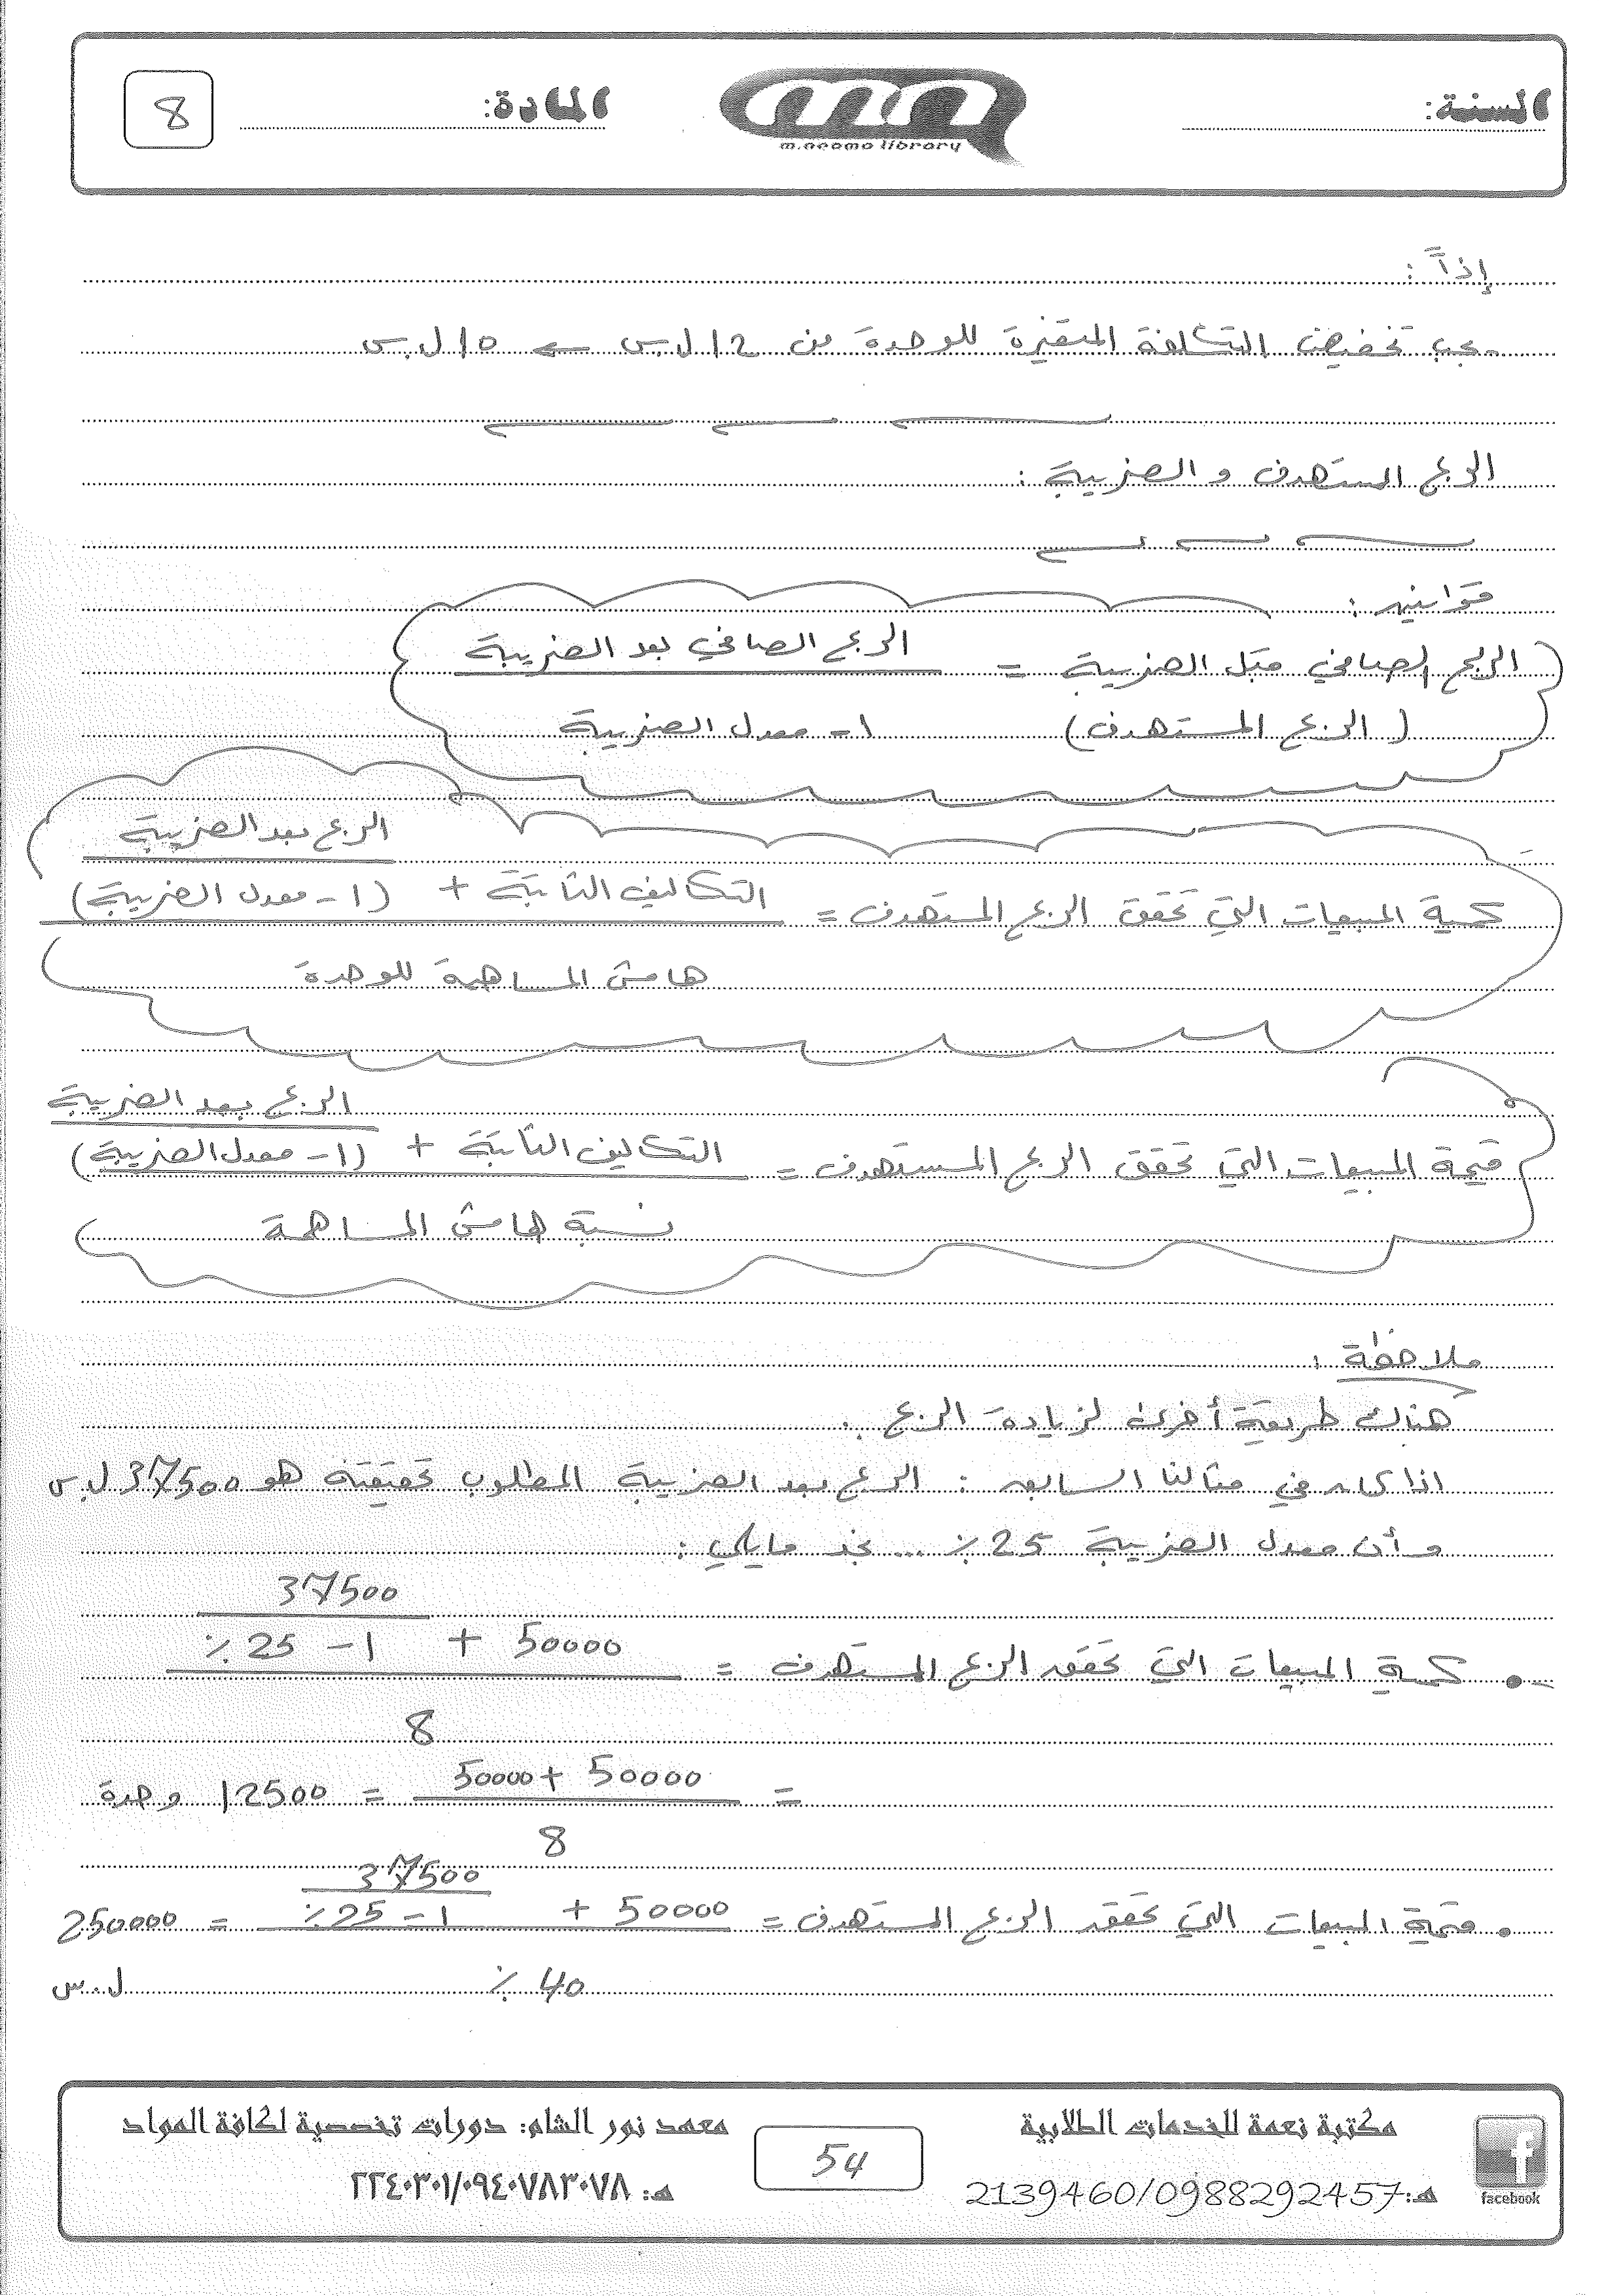 السنة:
m.neama library
المادة:
8
إذاً :
يجب تخفيض التكلفة المتغيرة للوحدة من 12 ل.س ← 10 ل.س
الربح المستهدف و الضريبة :
قوانين :
الربح الصافي قبل الضريبة = الربح الصافي بعد الضريبة
(الربح المستهدف) 1 - معدل الضريبة
الربح بعد الضريبة
كمية المبيعات التي تحقق الربح المستهدف = التكاليف الثابتة + (1 - معدل الضريبة)
هامش المساهمة للوحدة
الربح بعد الضريبة
قيمة المبيعات التي تحقق الربح المستهدف = التكاليف الثابتة + (1 - معدل الضريبة)
نسبة هامش المساهمة
ملاحظة :
هناك طريقة أخرى لزيادة الربح .
اذا كان في مثالنا السابق : الربح بعد الضريبة المطلوب تحقيقه هو 37500 ل.س
و أن معدل الضريبة 25 % ... نجد مايلي :
37500
كمية المبيعات التي تحقق الربح المستهدف = 50000 + 1 - 25 %
8
= 50000 + 50000 = 12500 وحدة
8
37500
. قيمة المبيعات التي تحقق الربح المستهدف = 50000 + 1 - 25 % = 250000
40 % ل.س
facebook
مكتبة نعمة للخدمات الطلابية
هـ: 2139460/0988292457
54
معهد نور الشام: دورات تخصصية لكافة المواد
هـ: ٢٢٤٠٣٠١/٠٩٤٠٧٨٣٠٧٨